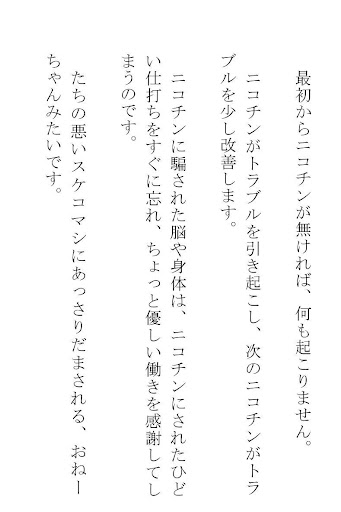 最初からニコチンが無ければ、何も起こりません。
ニコチンがトラブルを引き起こし、次のニコチンがトラ
ブルを少し改善します。
ニコチンに騙された脳や身体は、ニコチンにされたひど
い仕打ちをすぐに忘れ、ちょっと優しい働きを感謝してし
まうのです。
たちの悪いスケコマシにあっさりだまされる、おねー
ちゃんみたいです。